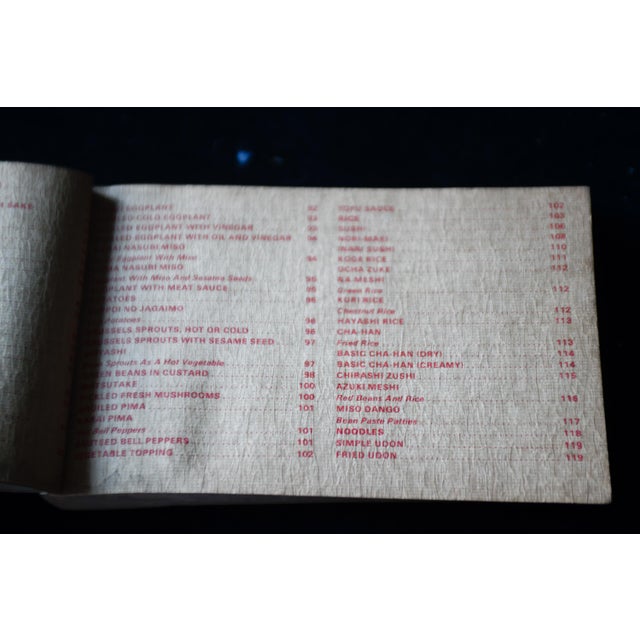 SAKE
EGGPLANT 92
LED COLD EGGPLANT 93
LED EGGPLANT WITH VINEGAR 93
LED EGGPLANT WITH OIL AND VINEGAR 94
AI NASUBI MISO
Eggplant With Miso 94
A NASUBI MISO
ant With Miso And Sesame Seeds 95
PLANT WITH MEAT SAUCE 95
ATOES 96
POI NO JAGAIMO
Potatoes 96
SSELS SPROUTS, HOT OR COLD 96
SSELS SPROUTS WITH SESAME SEED 97
YASHI
Sprouts As A Hot Vegetable 97
EN BEANS IN CUSTARD 98
TSUTAKE 100
KLED FRESH MUSHROOMS 100
OILED PIMA 101
AI PIMA
Bell Peppers 101
TEED BELL PEPPERS 101
ETABLE TOPPING 102
TOFU SAUCE 102
RICE 103
SUSHI 106
NORI-MAKI 108
INARI SUSHI 110
KOGE RICE 111
OCHA ZUKE 112
NA MESHI
Green Rice 112
KURI RICE
Chestnut Rice 112
HAYASHI RICE 113
CHA-HAN
Fried Rice 113
BASIC CHA-HAN (DRY) 114
BASIC CHA-HAN (CREAMY) 114
CHIRASHI ZUSHI 115
AZUKI MESHI
Red Beans And Rice 116
MISO DANGO
Bean Paste Patties 117
NOODLES 118
SIMPLE UDON 119
FRIED UDON 119